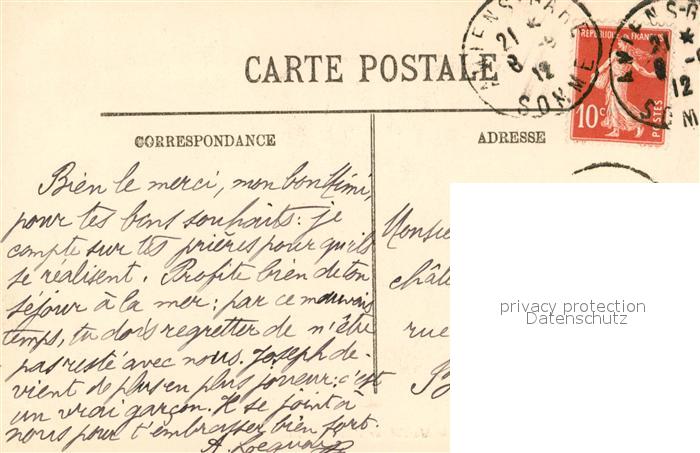 AMIENS-GARE
21 *
8 -8
12
SOMME
REPUBLIQUE FRANÇAISE
10c
POSTES
AMIENS-G
21 *
8
12
SOM
CARTE POSTALE
CORRESPONDANCE
ADRESSE
Bien le merci, mon bon Mimi,
pour tes bons souhaits : je
compte sur tes prières pour qu'ils
se réalisent. Profite bien de ton
séjour à la mer : par ce mauvais
temps, tu dois regretter de n'être
pas resté avec nous. Joseph de-
vient de plus en plus joueur : c'est
un vrai garçon. Il se joint à
nous pour t'embrasser bien fort.
A.
Monsie
châte
rue
privacy protection
Datenschutz